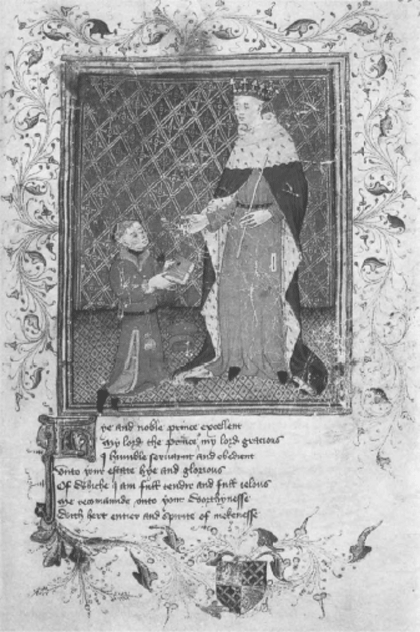 Hye and noble prince excellent
My lord the prince my lord gracious
I humble servant and obedient
Unto your estate hye and glorious
Of whiche I am full tendre and full ielous
Me recomaunde unto your worthynesse
With hert entier and spirite of mekenesse